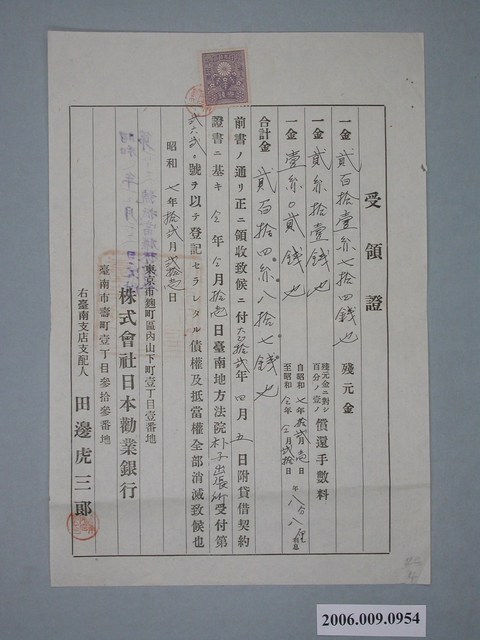 受領證
一金 貳百拾壹円七拾四錢也 殘元金
一金 貳円拾壹錢也 殘元金ニ對シ百分ノ壹ノ 償還手數料
一金 壹円〇貳錢也 自昭和七年拾貳月壱日 至昭和仝年仝月貳拾日
合計金 貳百拾四円八拾七錢也
前書ノ通リ正ニ領收致候ニ付大正拾貳年四月五日附貸借契約
證書ニ基キ仝年仝月拾壱日臺南地方法院朴子出張所受付第
貳六貳號ヲ以テ登記セラレタル債權及抵當權全部消滅致候也
昭和七年拾貳月貳拾壱日
東京市麴町區內山下町壹丁目壹番地
株式會社日本勸業銀行
臺南市壽町壹丁目參拾參番地
右臺南支店支配人 田邊虎三郎
2006.009.0954